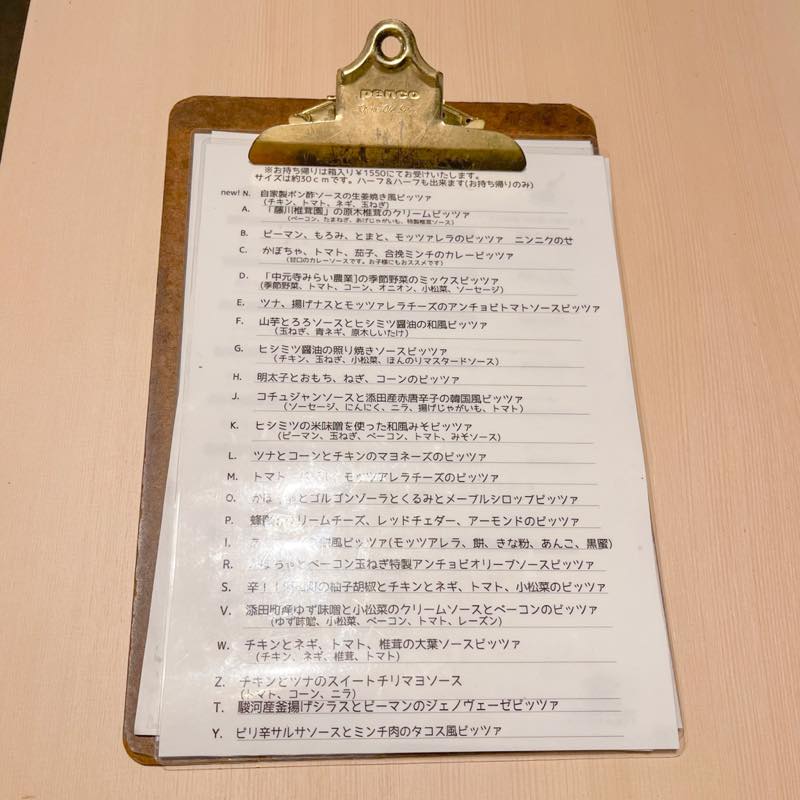 penco
※お持ち帰りは箱入り￥1550にてお受けいたします。
サイズは約30cmです。ハーフ＆ハーフも出来ます(お持ち帰りのみ)
new! N. 自家製ポン酢ソースの生姜焼き風ピッツァ
(チキン、トマト、ネギ、玉ねぎ)
A. 「藤川椎茸園」の原木椎茸のクリームピッツァ
(ベーコン、たまねぎ、あげじゃがいも、特製椎茸ソース)
B. ピーマン、もろみ、とまと、モッツァレラのピッツァ ニンニクのせ
C. かぼちゃ、トマト、茄子、合挽ミンチのカレーピッツァ
(甘口のカレーソースです。お子様にもおススメです)
D. 「中元寺みらい農業]の季節野菜のミックスピッツァ
(季節野菜、トマト、コーン、オニオン、小松菜、ソーセージ)
E. ツナ、揚げナスとモッツァレラチーズのアンチョビトマトソースピッツァ
F. 山芋とろろソースとヒシミツ醤油の和風ピッツァ
(玉ねぎ、青ネギ、原木しいたけ)
G. ヒシミツ醤油の照り焼きソースピッツァ
(チキン、玉ねぎ、小松菜、ほんのりマスタードソース)
H. 明太子とおもち、ねぎ、コーンのピッツァ
J. コチュジャンソースと添田産赤唐辛子の韓国風ピッツァ
(ソーセージ、にんにく、ニラ、揚げじゃがいも、トマト)
K. ヒシミツの米味噌を使った和風みそピッツァ
(ピーマン、玉ねぎ、ベーコン、トマト、みそソース)
L. ツナとコーンとチキンのマヨネーズのピッツァ
M. トマト モッツアレラチーズのピッツァ
O. かぼ とゴルゴンゾーラとくるみとメープルシロップピッツァ
P. 蜂 リームチーズ、レッドチェダー、アーモンドのピッツァ
I. 餅風ピッツァ(モッツアレラ、餅、きな粉、あんこ、黒蜜)
R. かぼちゃとベーコン玉ねぎ特製アンチョビオリーブソースピッツァ
S. 辛！！ の柚子胡椒とチキンとネギ、トマト、小松菜のピッツァ
V. 添田町産ゆず味噌と小松菜のクリームソースとベーコンのピッツァ
(ゆず味噌、小松菜、ベーコン、トマト、レーズン)
W. チキンとネギ、トマト、椎茸の大葉ソースピッツァ
(チキン、ネギ、椎茸、トマト)
Z. チキンとツナのスイートチリマヨソース
(トマト、コーン、ニラ)
T. 駿河産釜揚げシラスとピーマンのジェノヴェーゼピッツァ
Y. ピリ辛サルサソースとミンチ肉のタコス風ピッツァ